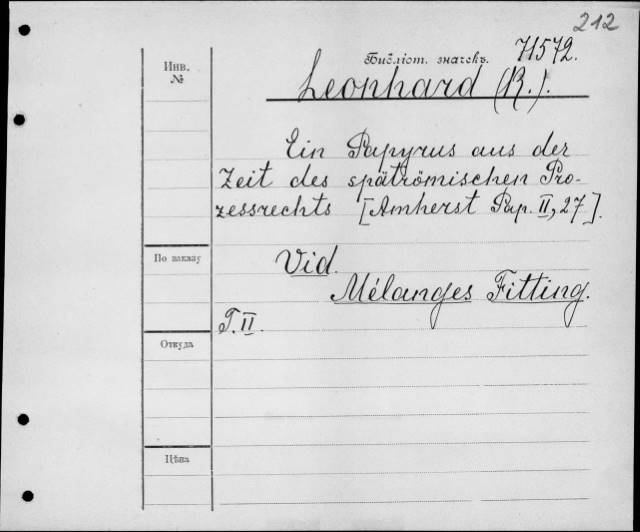 212
Инв. №
Библіот. значекъ. 71572.
Leonhard (R.).
Ein Papyrus aus der
Zeit des spätrömischen Pro-
zessrechts [Amherst Pap. II, 27].
По заказу
Vid.
Mélanges Fitting.
T. II.
Откуда
Цѣна